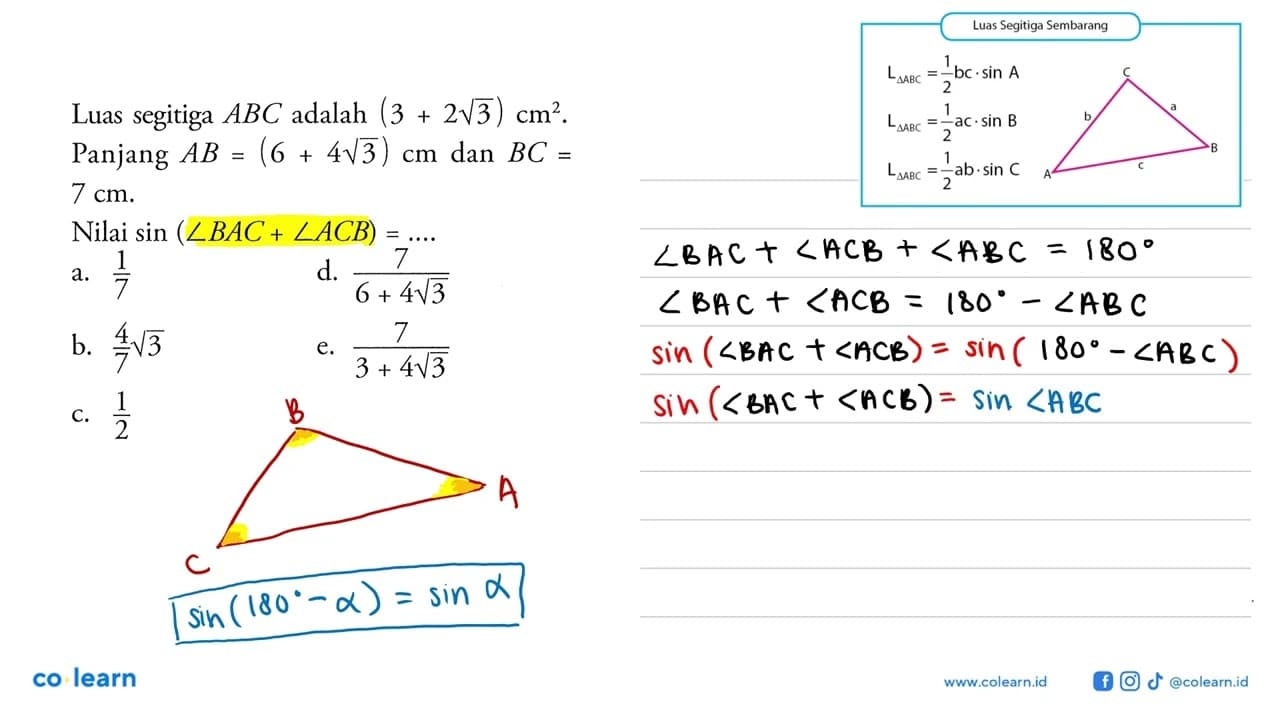 Luas segitiga ABC adalah (3 + 2√3) cm².
Panjang AB = (6 + 4√3) cm dan BC =
7 cm.
Nilai sin (∠BAC + ∠ACB) = ....
a. 1/7
d. 7/(6 + 4√3)
b. 4/7 √3
e. 7/(3 + 4√3)
c. 1/2
B
A
C
sin(180° - α) = sin α
Luas Segitiga Sembarang
L△ABC = 1/2 bc · sin A
L△ABC = 1/2 ac · sin B
L△ABC = 1/2 ab · sin C
C
b
a
B
c
A
∠BAC + ∠ACB + ∠ABC = 180°
∠BAC + ∠ACB = 180° - ∠ABC
sin (∠BAC + ∠ACB) = sin( 180° - ∠ABC)
sin (∠BAC + ∠ACB) = sin ∠ABC
co learn
www.colearn.id
@colearn.id